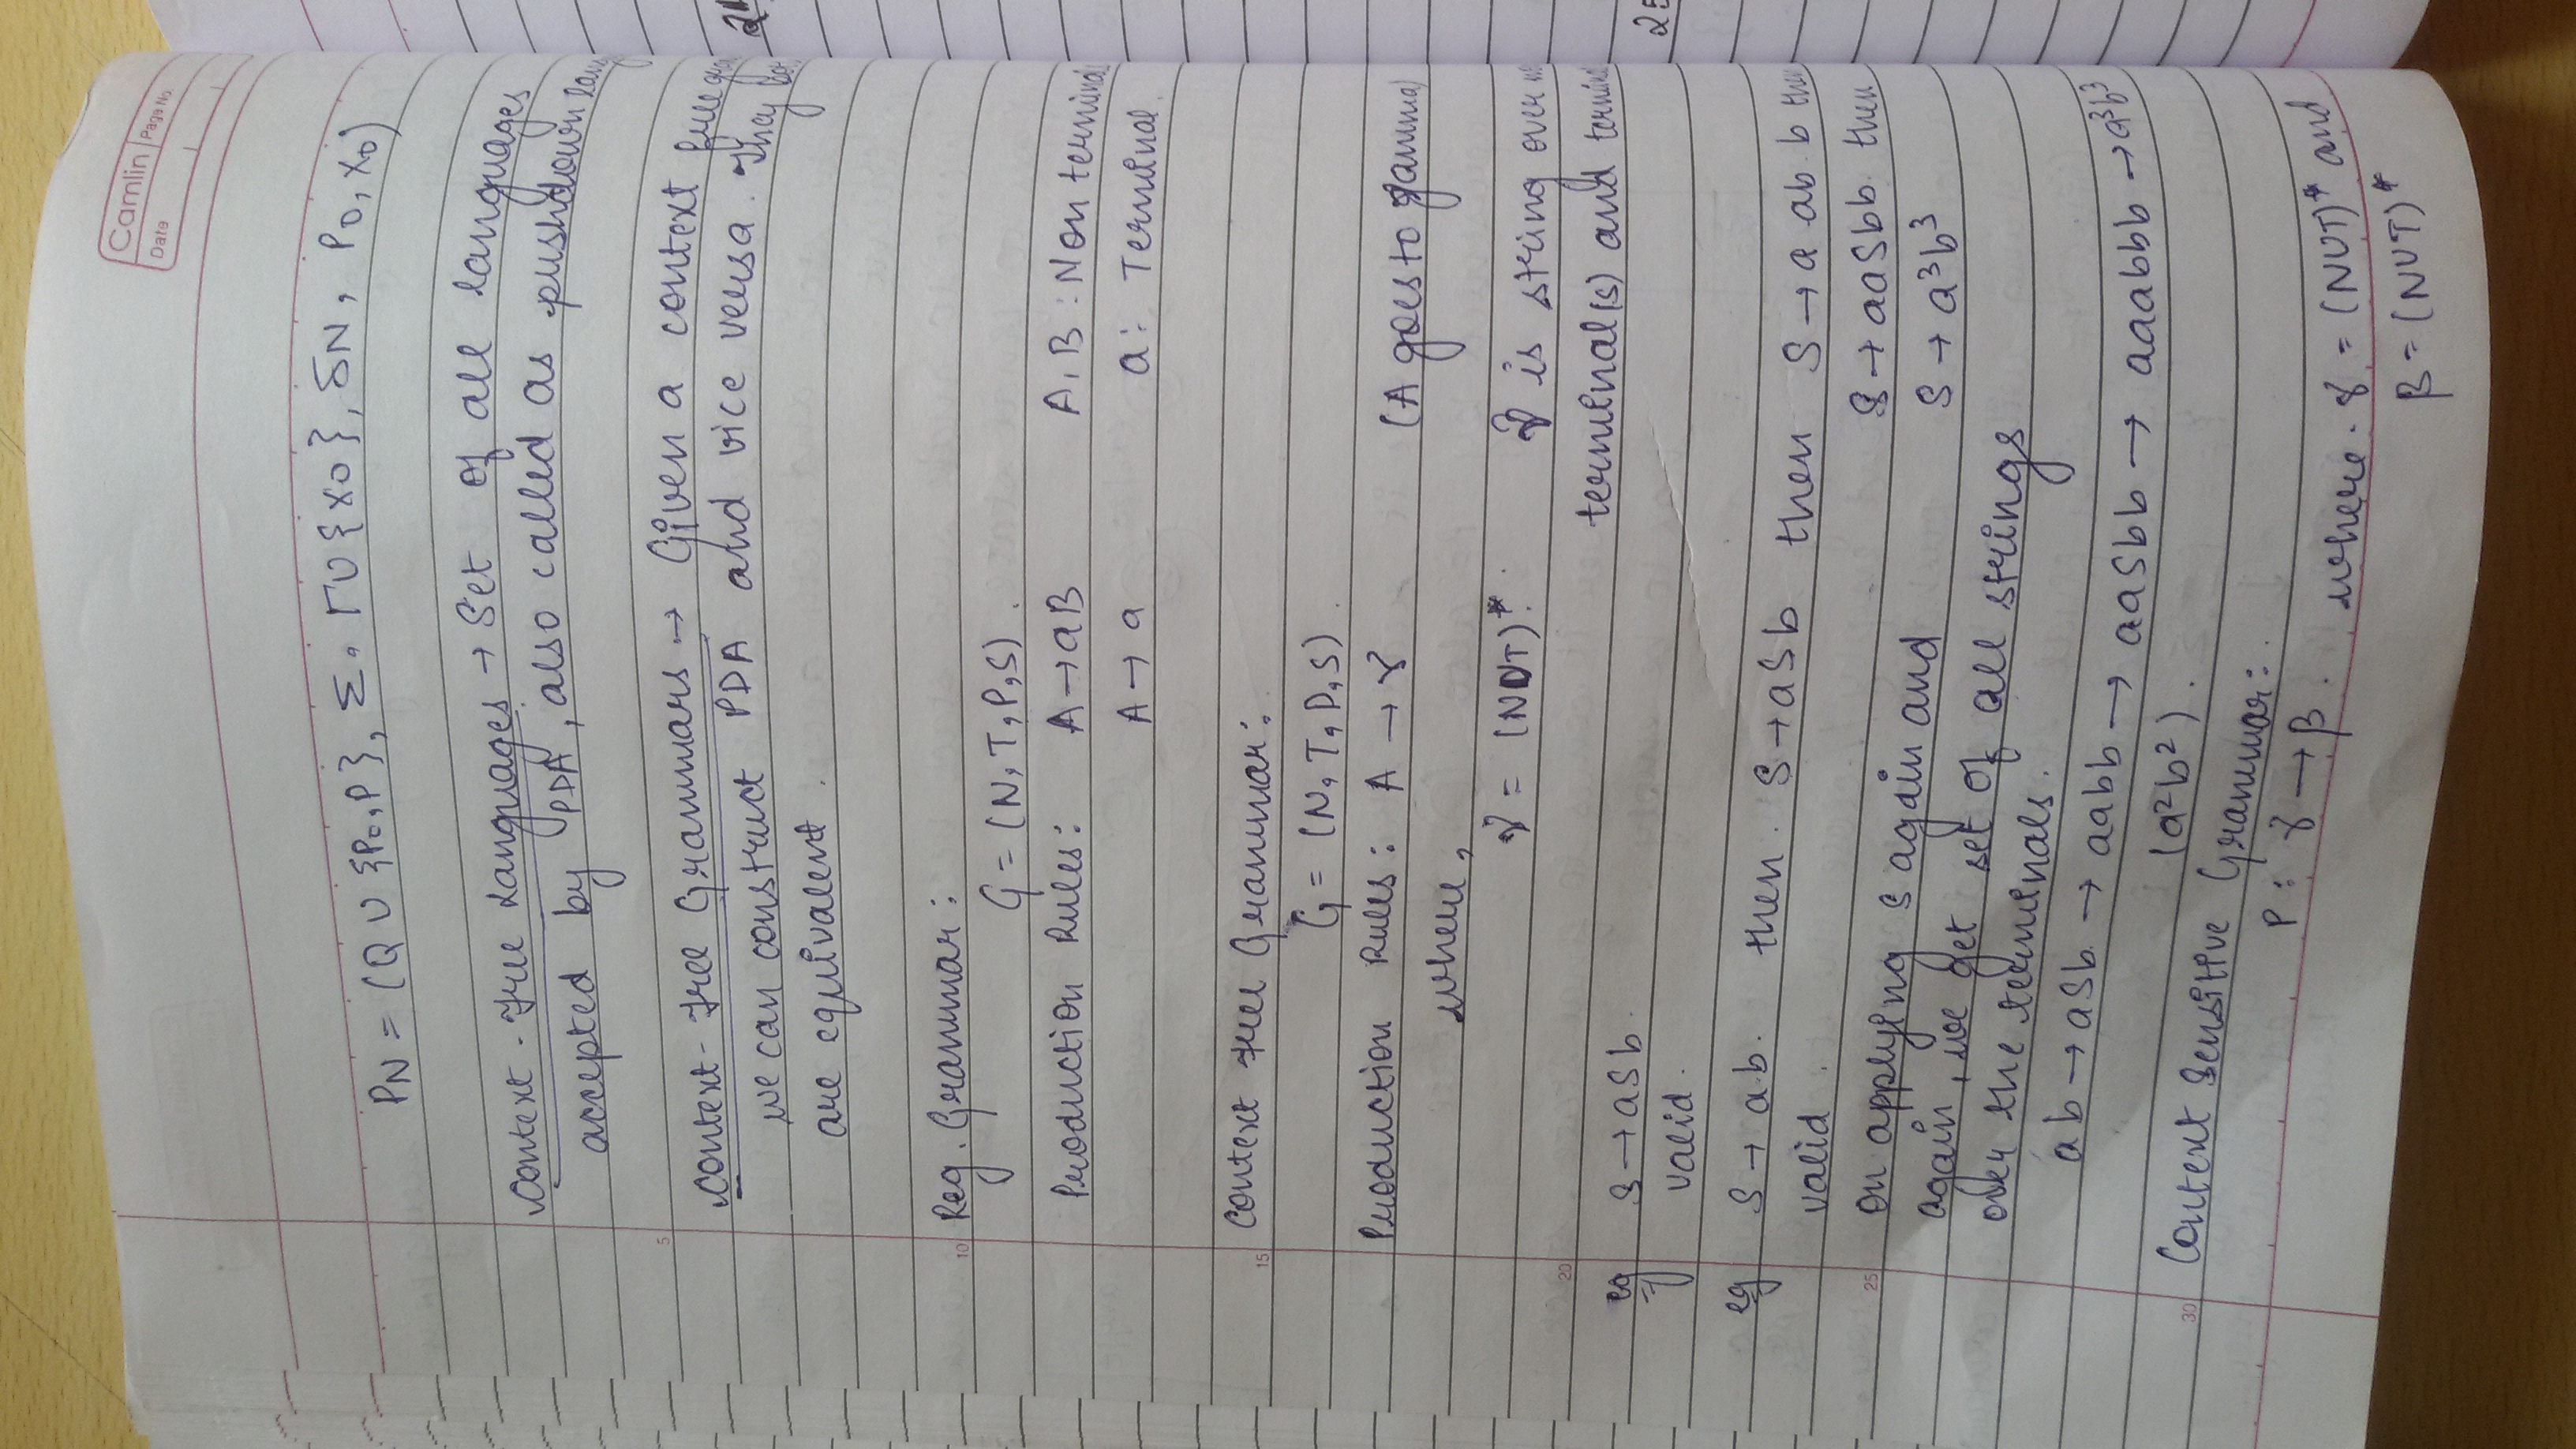 Camlin Page No.
Date
PN = (Q U {P0, P}, Σ, ΓU{X0}, δN, P0, X0)
Context-Free Languages → Set of all languages
accepted by PDA, also called as pushdown lang
5
Context-Free Grammars → Given a context free
we can construct PDA and vice versa. They
are equivalent.
10 Reg. Grammar:
G = (N, T, P, S).
Production Rules: A → aB A, B : Non
A → a a: Terminal.
15 Context Free Grammar:
G = (N, T, P, S).
Production Rules: A → γ (A goes to gamma)
where,
γ = (NUT)*. γ is string over
20 terminal(s) and
eg S → aSb.
valid.
eg S → ab. then. S → aSb then S → a ab b then
valid.
S → aaSbb. then
25 on applying S again and
S → a³b³
again, we get set of all strings
over the terminals.
ab → aSb. → aabb → aaSbb → aaabbb → a³b³
(a²b²).
30 Context Sensitive Grammar:
P: γ → β. where. γ = (NUT)* and
β = (NUT)*
25